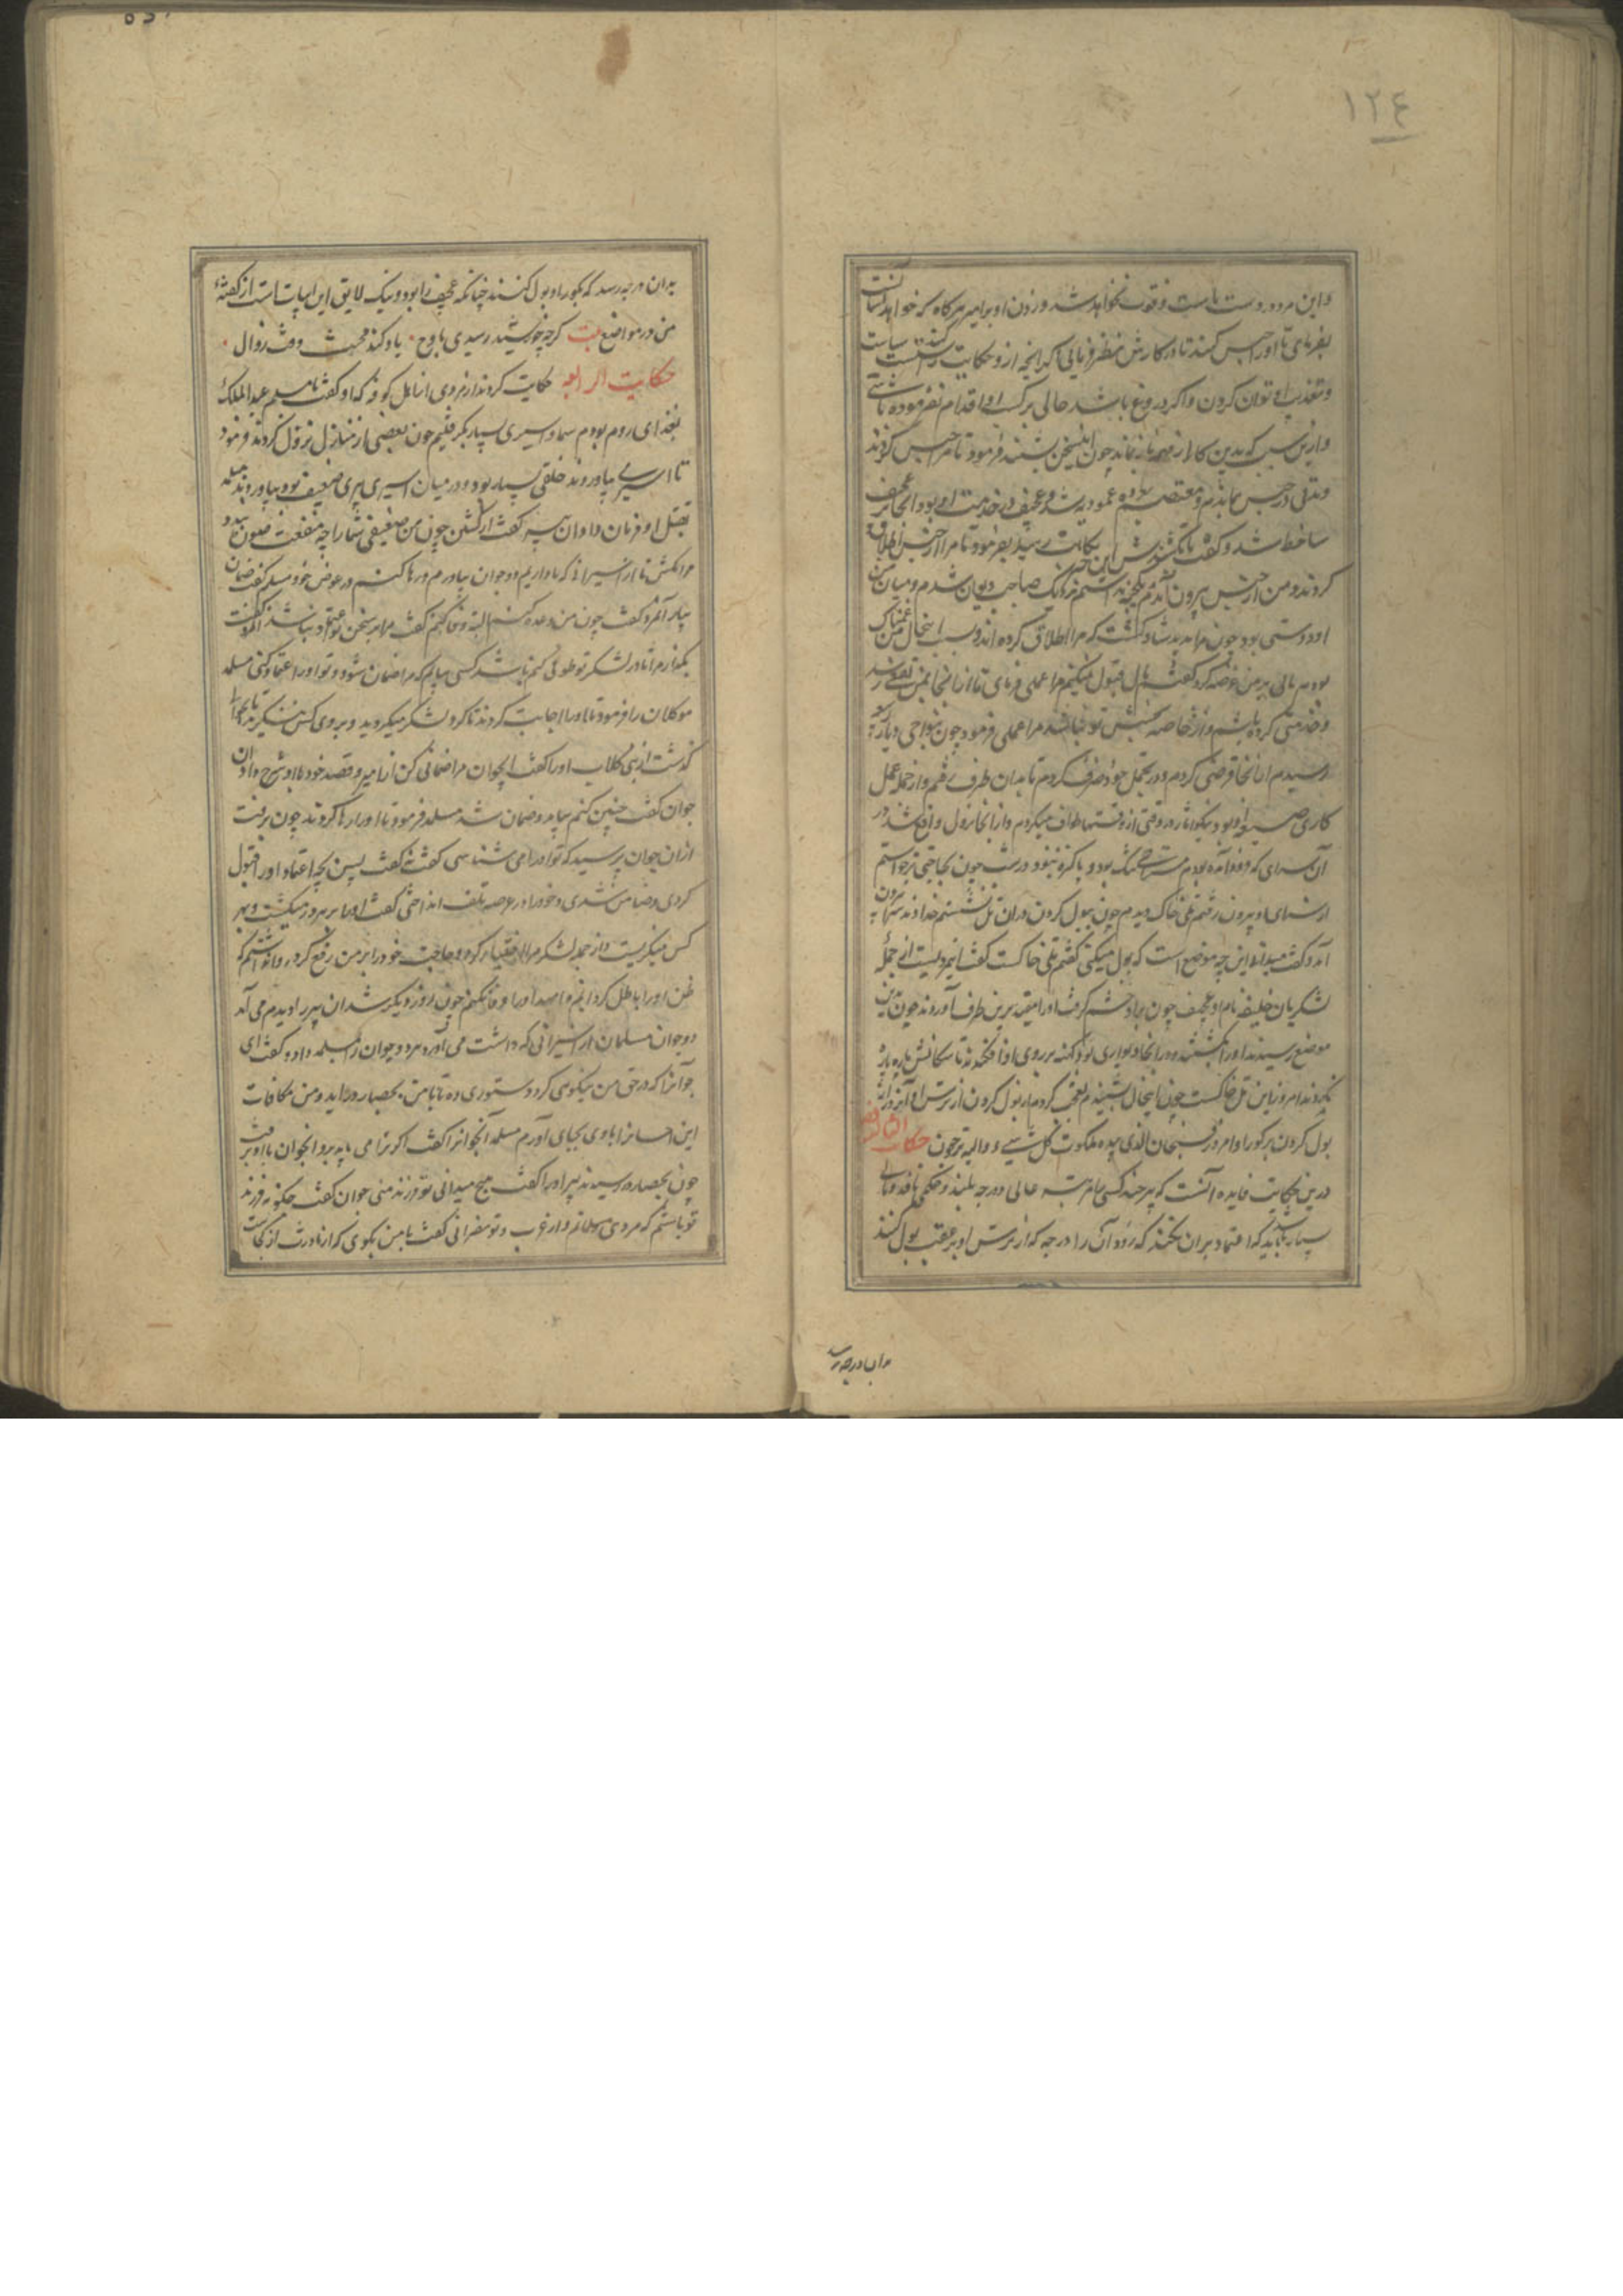 ١٢٤
و این مرد در دست ماست و فوت نخواهد شد و زدن او بر امیر هرگاه که خواهد آسانست
بفرمای تا او را حبس کنند تا در کارش نظر فرمائی اگر آنچه ازو حکایت کنند راستست سیاست
و تعذیب او توان کردن و اگر دروغ باشد حالی بر کسب او اقدام نفرموده باشی
و ازین سبب که بدین کار از مهم باز نماند چون این سخن بشنید فرمود تا مرا حبس کردند
و مدتی در حبس بماندم و معتصم بعموریه شد و عجیف در خدمت او بود آنجا بر عجیف
ساخط شد و گفت تا بکشندش این خبر بکاتب رسید بفرمود تا مرا از حبس اطلاق
کردند و من از حبس بیرون آمدم بهیچ نداشتم نزدیک صاحب دیوان شدم و میان من
او دوستی بود چون مرا بدید شاد گشت که مرا اطلاق کرده اند و بسبب اینحال من غمناک
بود مالی بر من عرضه کرد گفتم مال قبول نمیکنم مرا عملی فرمای تا از آنجا بمن نفعی رسد
و خدمتی کرده باشم و از خاصه مرا عملی فرمود چون بنواحی دیار بکر
رسیدم از آنجا قرضی کردم و در تجمل خود صرف کردم تا بدان طرف رفتم و از جمله عمل
در وقتی از وقتها طواف میکردم و از آنجا نزول واقع شد در
آن سرای که فرود آمده بودم مستراحی تنگ بود و پاکیزه نبود در شب چون بحاجتی برخواستم
از سرای او بیرون رفتم تلی خاک دیدم چون ببول کردن بر آن تل نشستم خداوند سرای بیرون
آمد و گفت میدانی این چه موضع است که بول میکنی گفتم تلی خاکست گفت این مردیست از جمله
لشکریان خلیفه نام او عجیف چون برو خشم گرفت او را مقید برین طرف آوردند چون بدین
موضع رسیدند او را بکشتند و در اینجا دیواری بود کهنه بر روی او افکندند تا سگانش پاره پاره
نکردند امروز این تل خاکست چون اینحال بشنیدم تعجب کردم از بول کردن از ترس او آنروز و از
بول کردن بر گور او امروز فسبحان الذی بیده ملکوت کل شیء و الیه ترجعون حکایت
درین حکایت فایده آنست که هر چند کسی بمرتبه عالی و درجه بلند و حکمی نافذ و مالی
بسیار رسد باید که اعتماد بران نکند که زود آن را درجه که از ترس او بر عقب بول کنند
بدان درجه رسد
بدان درجه رسد که بگور او بول کنند چنانکه عجیف را بود و نیک لایق این ابیات است از گفته
من در مواضع بیت گر چه چو خورشید رسیدی باوج ٠ یاد کن محنت وقت زوال ٠
حکایت الرابعه حکایت کردند از مردی از اهل کوفه که او گفت با مسلمه عبد الملک
بغزای روم بودم بسیار اسیری بسیار بگرفتیم چون ببعضی از منازل نزول کردند فرمود
تا اسیری بیاوردند خلقی بسیار بود و در میان اسیری پیری ضعیف بود بیاوردند مسلمه
بقتل او فرمان داد آن پیر گفت از کشتن چون من ضعیفی شما را چه منفعت بود
مرا مکش تا از اسیرانی که ما داریم دو جوان بیاورم و رها کنم در عوض خود مسلمه گفت ضمان
بیار آنمرد گفت چون من وعده کنم البته وفا کنم گفت مرا بر سخن تو اعتماد نباشد آنمرد گفت
بگذار مرا تا در لشکر تو طوفی کنم باشد کسی بیابم که مرا ضمان شود و تو اورا اعتماد کنی مسلمه
موکلان را فرمود تا او را اجابت کردند تا گرد لشکر میگردید و بروی کس مینگریست تا بجوانی
گذشت از بنی کلاب او را گفت ایجوان مرا ضمانی کن از امیر و قصه خود با او شرح داد آن
جوان گفت چنین کنم بیامد و ضمان شد مسلمه فرمود تا او را رها کردند چون برفت
از آن جوان پرسید که تو او را می شناسی گفت نه گفت پس بچه اعتماد او را قبول
کردی و ضامن شدی و خود را در عرصه تلف انداختی گفت او را بر هر روز میگشت و بهر
کس مینگریست و از جمله لشکر مرا اختیار کرد و حاجت خود را بر من رفع کرد روا نداشتم که
ظن او را باطل گردانم و امید او را وفا نکنم چون روز دیگر شد آن پیر را دیدم می آمد
دو جوان مسلمان از اسیرانی که داشت می آورد هر دو جوان را بمسلمه داد و گفت ای
جوانرا که در حق من نیکوئی کرد دستوری ده تا با من بحصار در آید و من مکافات
این احسانرا با وی بجای آورم مسلمه آنجوانرا گفت اگر ترا می باید برو آنجوان با او برفت
چون بحصار رسیدند پیر او را گفت هیچ میدانی تو فرزند منی جوان گفت چگونه فرزند
تو باشم که من مردی مسلمانم و از عرب و تو نصرانی گفت با من بگوی که از مادرت از کجاست